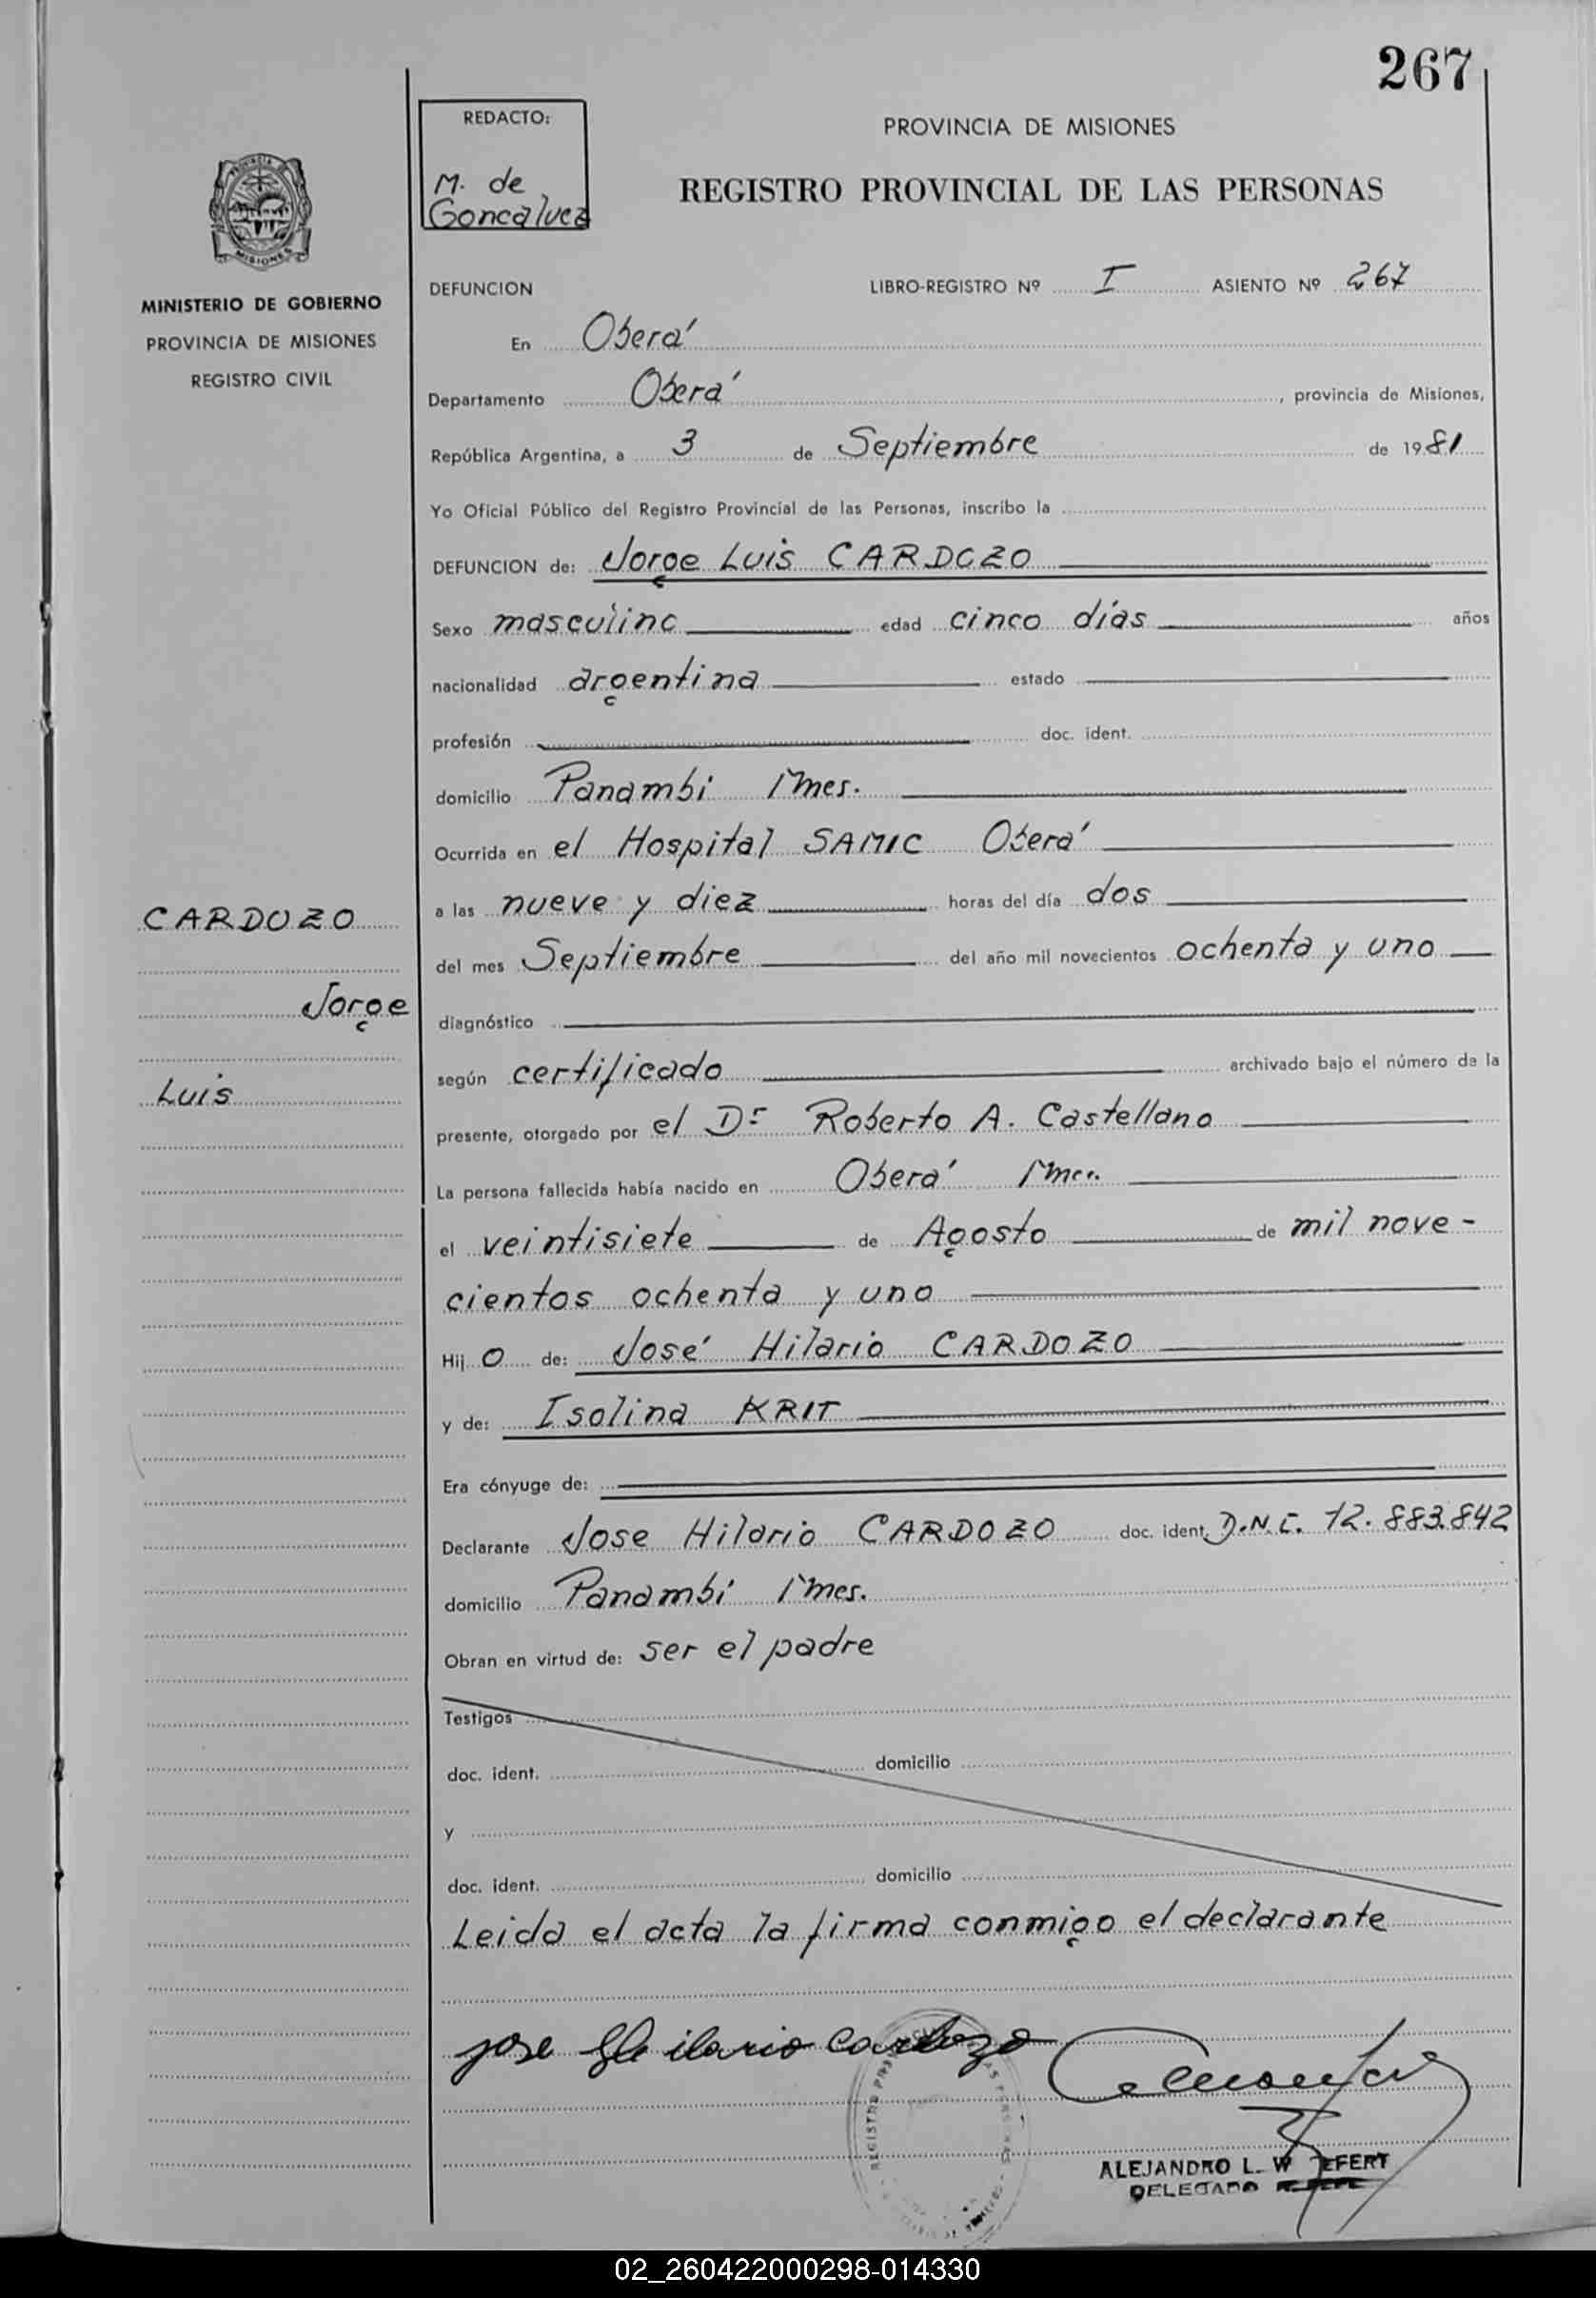 267
REDACTO:
M. de
Goncalvez
PROVINCIA DE MISIONES
REGISTRO PROVINCIAL DE LAS PERSONAS
MISIONES
MINISTERIO DE GOBIERNO
PROVINCIA DE MISIONES
REGISTRO CIVIL
DEFUNCION LIBRO-REGISTRO Nº I ASIENTO Nº 267
En Oberá
Departamento Oberá, provincia de Misiones,
República Argentina, a 3 de Septiembre de 1981
Yo Oficial Público del Registro Provincial de las Personas, inscribo la
DEFUNCION de: Jorge Luis CARDOZO
Sexo masculino edad cinco días años
nacionalidad argentina estado
profesión doc. ident.
domicilio Panambi Mnes.
Ocurrida en el Hospital SAMIC Oberá
a las nueve y diez horas del día dos
del mes Septiembre del año mil novecientos ochenta y uno
diagnóstico
según certificado archivado bajo el número de la
presente, otorgado por el Dr Roberto A. Castellano
La persona fallecida había nacido en Oberá Mnes.
el veintisiete de Agosto de mil nove-
cientos ochenta y uno
Hijo de: José Hilario CARDOZO
y de: Isolina KRIT
Era cónyuge de:
Declarante Jose Hilario CARDOZO doc. ident. D.N.I. 12.883.842
domicilio Panambi Mnes.
Obran en virtud de: ser el padre
Testigos
doc. ident. domicilio
y
doc. ident. domicilio
Leida el acta la firma conmigo el declarante
CARDOZO
Jorge
Luis
jose Hilario Cardozo
ALEJANDRO L. W
DELEGADO
02_260422000298-014330